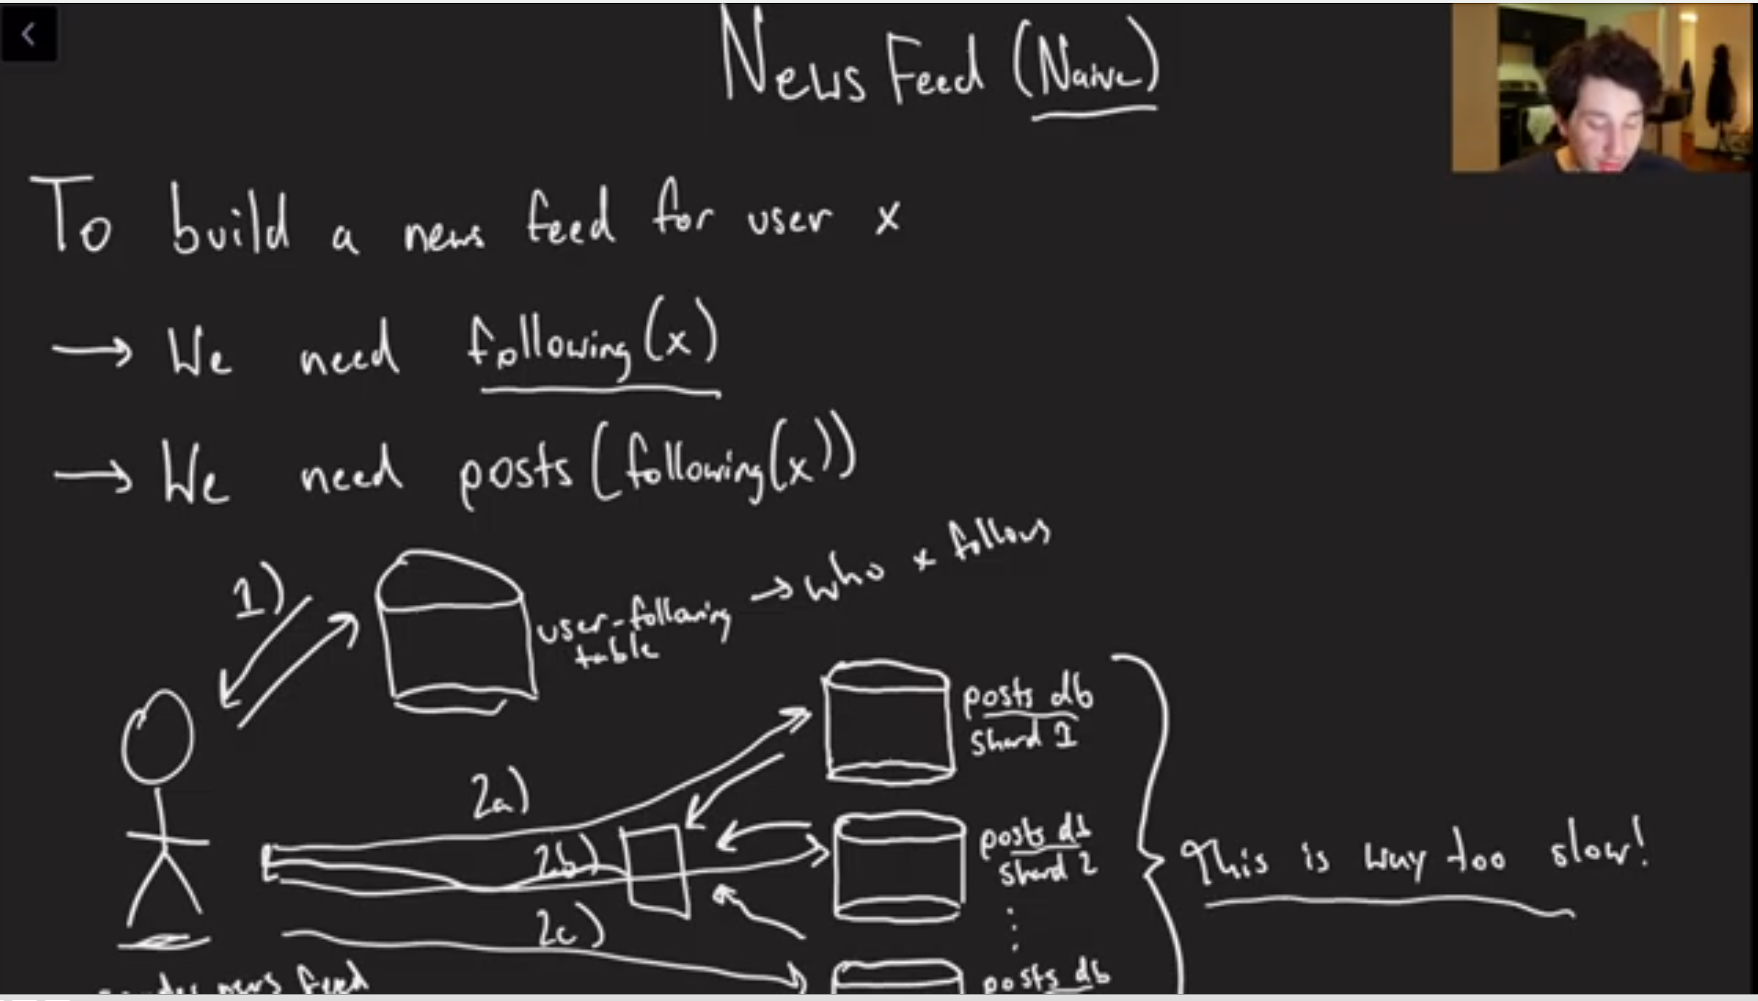 News Feed (Naive)
To build a news feed for user x
→ We need following(x)
→ We need posts(following(x))
1)
user-following
table
→ who x follows
posts db
Shard 1
2a)
2b)
posts db
Shard 2
This is way too slow!
2c)
posts db
news feed